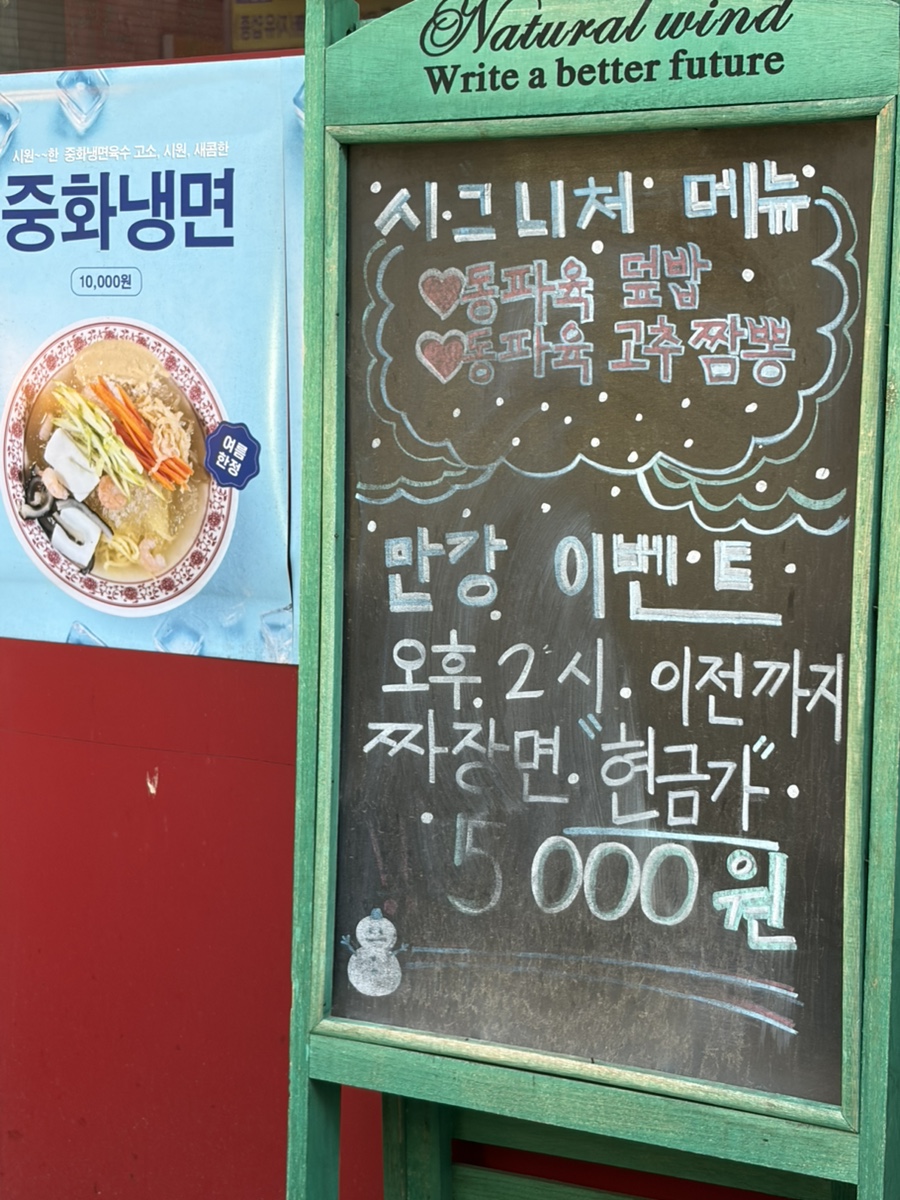 시원~~한 중화냉면육수 고소, 시원, 새콤한
중화냉면
10,000원
여름
한정
Natural wind
Write a better future
시그니처 메뉴
♥동파육 덮밥
♥동파육 고추짬뽕
만강 이벤트
오후 2시. 이전까지
짜장면 "현금가"
5000원